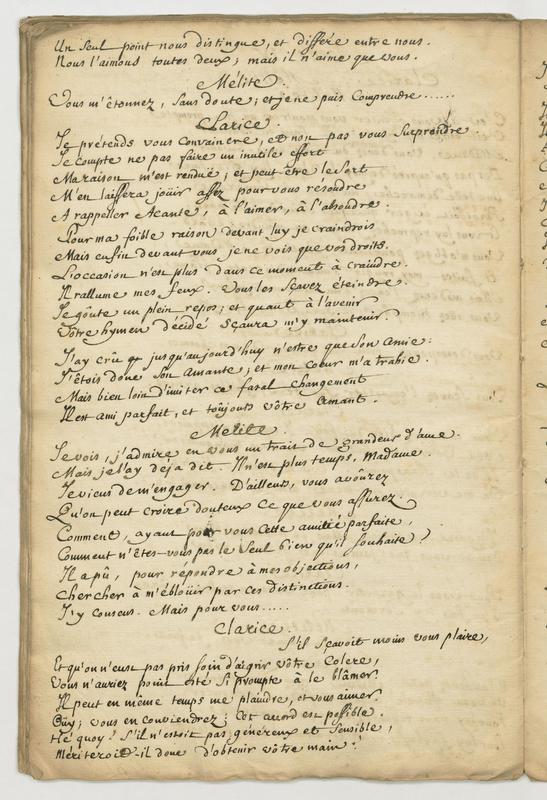 Un seul point nous distingue, et differe entre nous.
Nous l'aimons toutes deux; mais il n'aime que vous.
Mélite.
Vous m'étonnez, sans doute; et je ne puis comprendre......
Clarice.
Je prétends vous convaincre, et non pas vous surprendre.
Je compte ne pas faire un inutile effort
Ma raison m'est renduë; et peut être le sort
M'en laissera joüir assez pour vous résoudre
A rappeller Acante, à l'aimer, à l'absoudre.
Pour ma foible raison devant luy je craindrois
Mais enfin devant vous je ne vois que vos droits.
L'occasion n'est plus dans ce moment à craindre.
Il rallume mes feux. Vous les sçavez éteindre.
Je goûte un plein repos; et quant à l'avenir
Votre hymen décidé sçaura m'y maintenir.
J'ay crû jusqu'aujourd'huy n'estre que son amie:
J'étois donc son Amante; et mon coeur m'a trahie.
Mais bien loin d'imiter ce fatal changement
Il est ami parfait, et toûjours vôtre amant.
Mélite.
Je vois, j'admire en vous un trait de grandeur d'ame.
Mais je l'ay déja dit. Il n'est plus temps, Madame.
Je viens de m'engager. D'ailleurs, vous avoûrez
Qu'on peut croire douteux ce que vous assurez.
Comment, ayant pour vous cette amitié parfaite,
Comment n'êtes-vous pas le seul bien qu'il souhaite?
Il a pû, pour répondre à mes objections,
Chercher à m'éblouïr par ces distinctions.
J'y consens. Mais pour vous.....
Clarice.
S'il sçavoit moins vous plaire,
Et qu'on n'eust pas pris soin d'aigrir vôtre colere,
Vous n'auriez point esté si prompte à le blâmer.
Il peut en même temps me plaindre, et vous aimer
Oüy; vous en conviendrez; cet accord est possible.
Hé quoy! s'il n'estoit pas généreux et sensible,
Mériteroit-il donc d'obtenir vôtre main?